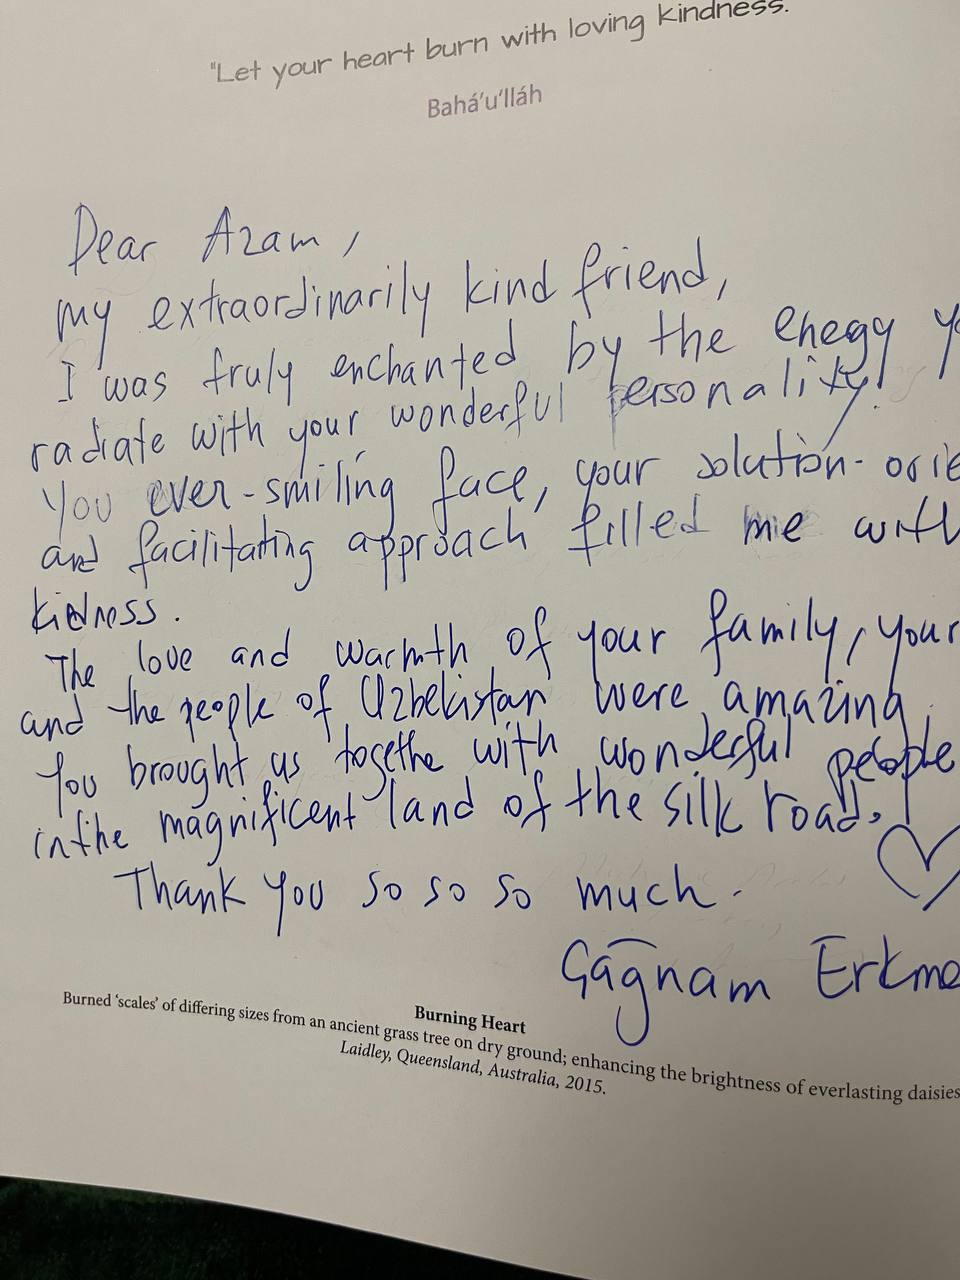 "Let your heart burn with loving kindness.
Bahá'u'lláh
Dear Azam,
my extraordinarily kind friend,
I was truly enchanted by the enegy y
radiate with your wonderful personality!
You ever-smiling face, your solution-orie
and facilitating approach filled me with
kidness.
The love and warmth of your family, your
and the people of Uzbekistan were amazing.
You brought us togethe with wonderful people
in the magnificent land of the silk road.
Thank you so so so much.
Çağnam Erkme
Burning Heart
Burned 'scales' of differing sizes from an ancient grass tree on dry ground; enhancing the brightness of everlasting daisies
Laidley, Queensland, Australia, 2015.